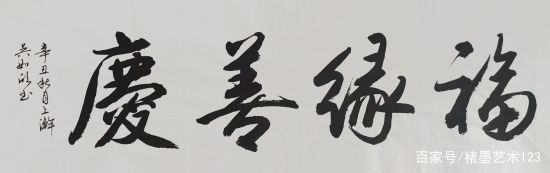 福緣善慶
辛丑秋月上澣
吴如欣书
百家号/楮墨艺术123